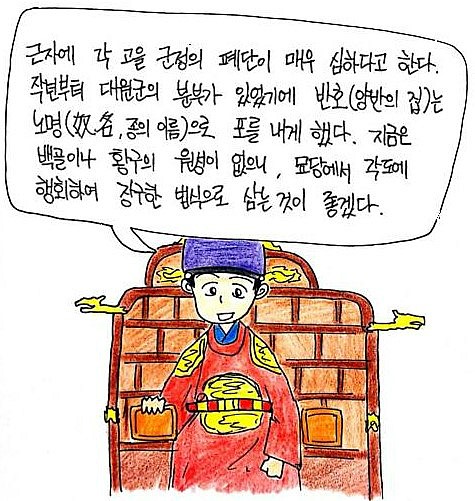 근자에 각 고을 군정의 폐단이 매우 심하다고 한다.
작년부터 대원군의 분부가 있었기에 반호(양반의 집)는
노명(奴名, 종의 이름)으로 포를 내게 했다. 지금은
백골이나 황구의 원성이 없으니, 묘당에서 각도에
행회하여 장구한 법식으로 삼는 것이 좋겠다.